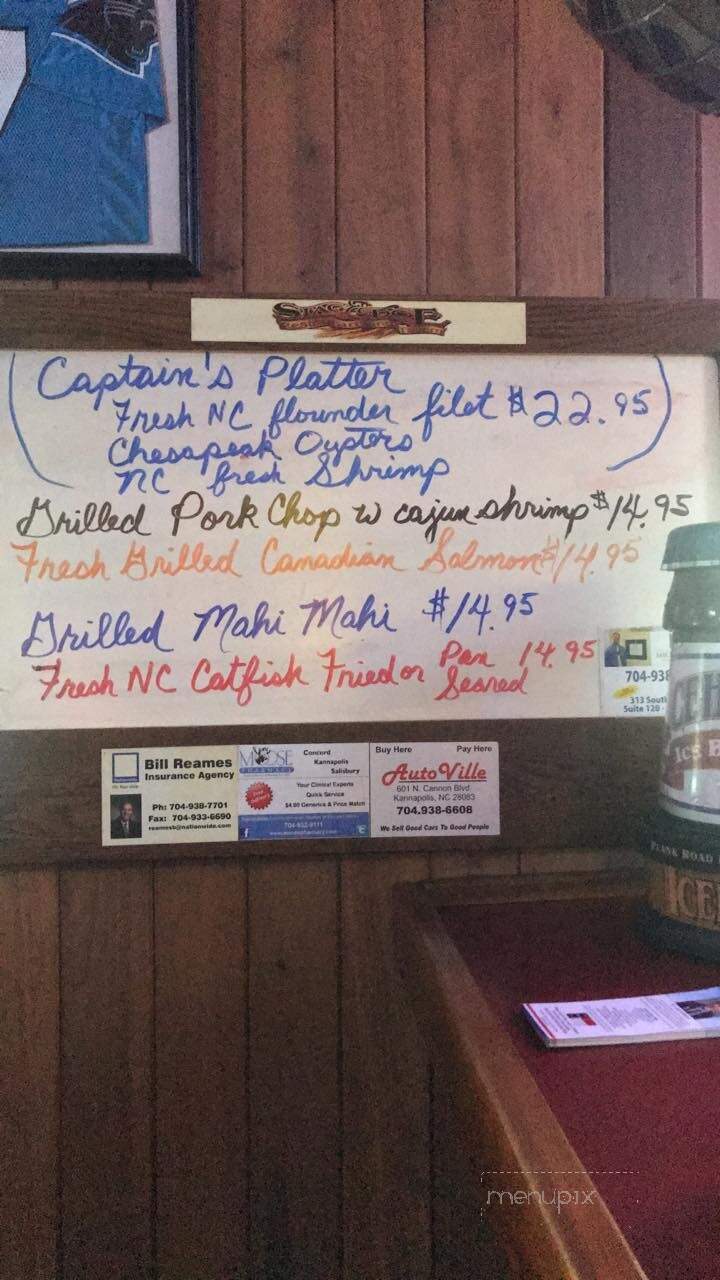 Captain's Platter
Fresh NC flounder filet $22.95
Chesapeak Oysters
NC fresh Shrimp
Grilled Pork Chop w cajun shrimp $14.95
Fresh Grilled Canadian Salmon $14.95
Grilled Mahi Mahi $14.95
Fresh NC Catfish Fried or Pan Seared 14.95
704-938
313 Sout
Suite 120
Bill Reames
Insurance Agency
Ph: 704-938-7701
Fax: 704-933-6690
reamesb@nationwide.com
MOOSE
PHARMACY
Concord
Kannapolis
Salisbury
Your Clinical Experts
Quick Service
$4.00 Generics & Price Match
704-932-9111
Buy Here Pay Here
AutoVille
601 N. Cannon Blvd
Kannapolis, NC 28083
704.938-6608
We Sell Good Cars To Good People
ICE
PLANK ROAD
ICE
menupix